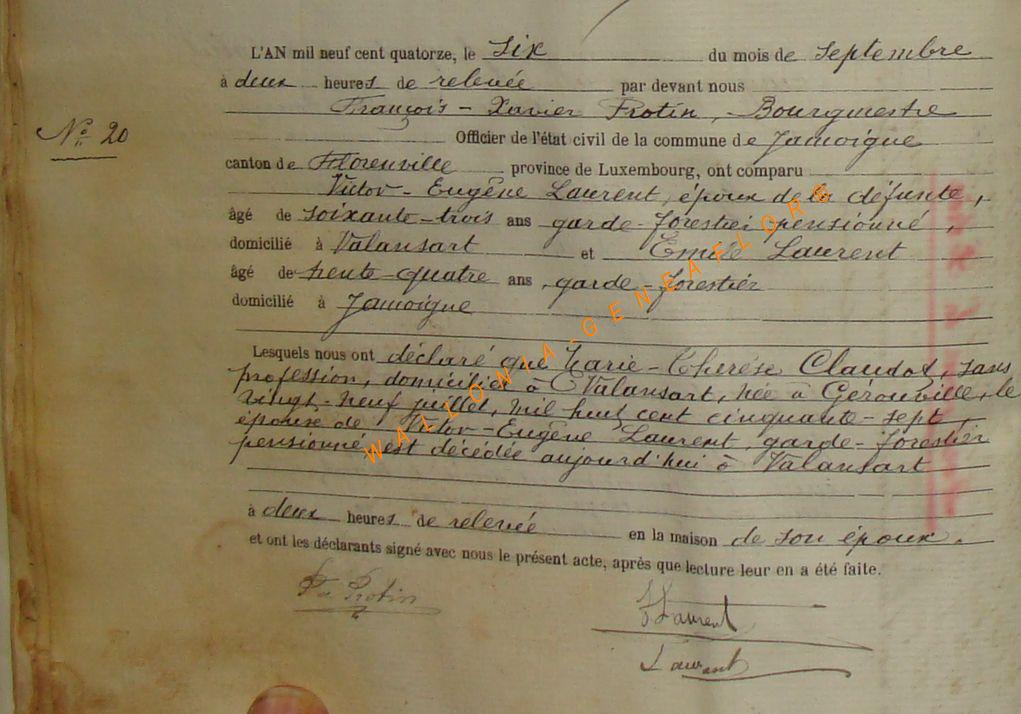 L'AN mil neuf cent quatorze, le six du mois de septembre
à deux heures de relevée par devant nous
François-Xavier Protin, Bourgmestre
N° 20
Officier de l'état civil de la commune de Jamoigne
canton de Florenville province de Luxembourg, ont comparu
Victor-Eugène Laurent, époux de la défunte,
âgé de soixante-trois ans garde-forestier pensionné,
domicilié à Valansart et Emile Laurent
âgé de trente-quatre ans, garde-forestier
domicilié à Jamoigne
Lesquels nous ont déclaré que Marie-Thérèse Claudot, sans
profession, domiciliée à Valansart, née à Gérouville, le
vingt-neuf juillet, mil huit cent cinquante-sept,
épouse de Victor-Eugène Laurent, garde-forestier
pensionné est décédée aujourd'hui à Valansart
à deux heures de relevée en la maison de son époux.
et ont les déclarants signé avec nous le présent acte, après que lecture leur en a été faite.
Protin
Laurent
Laurent
WALLONIA-GENEAFLORE